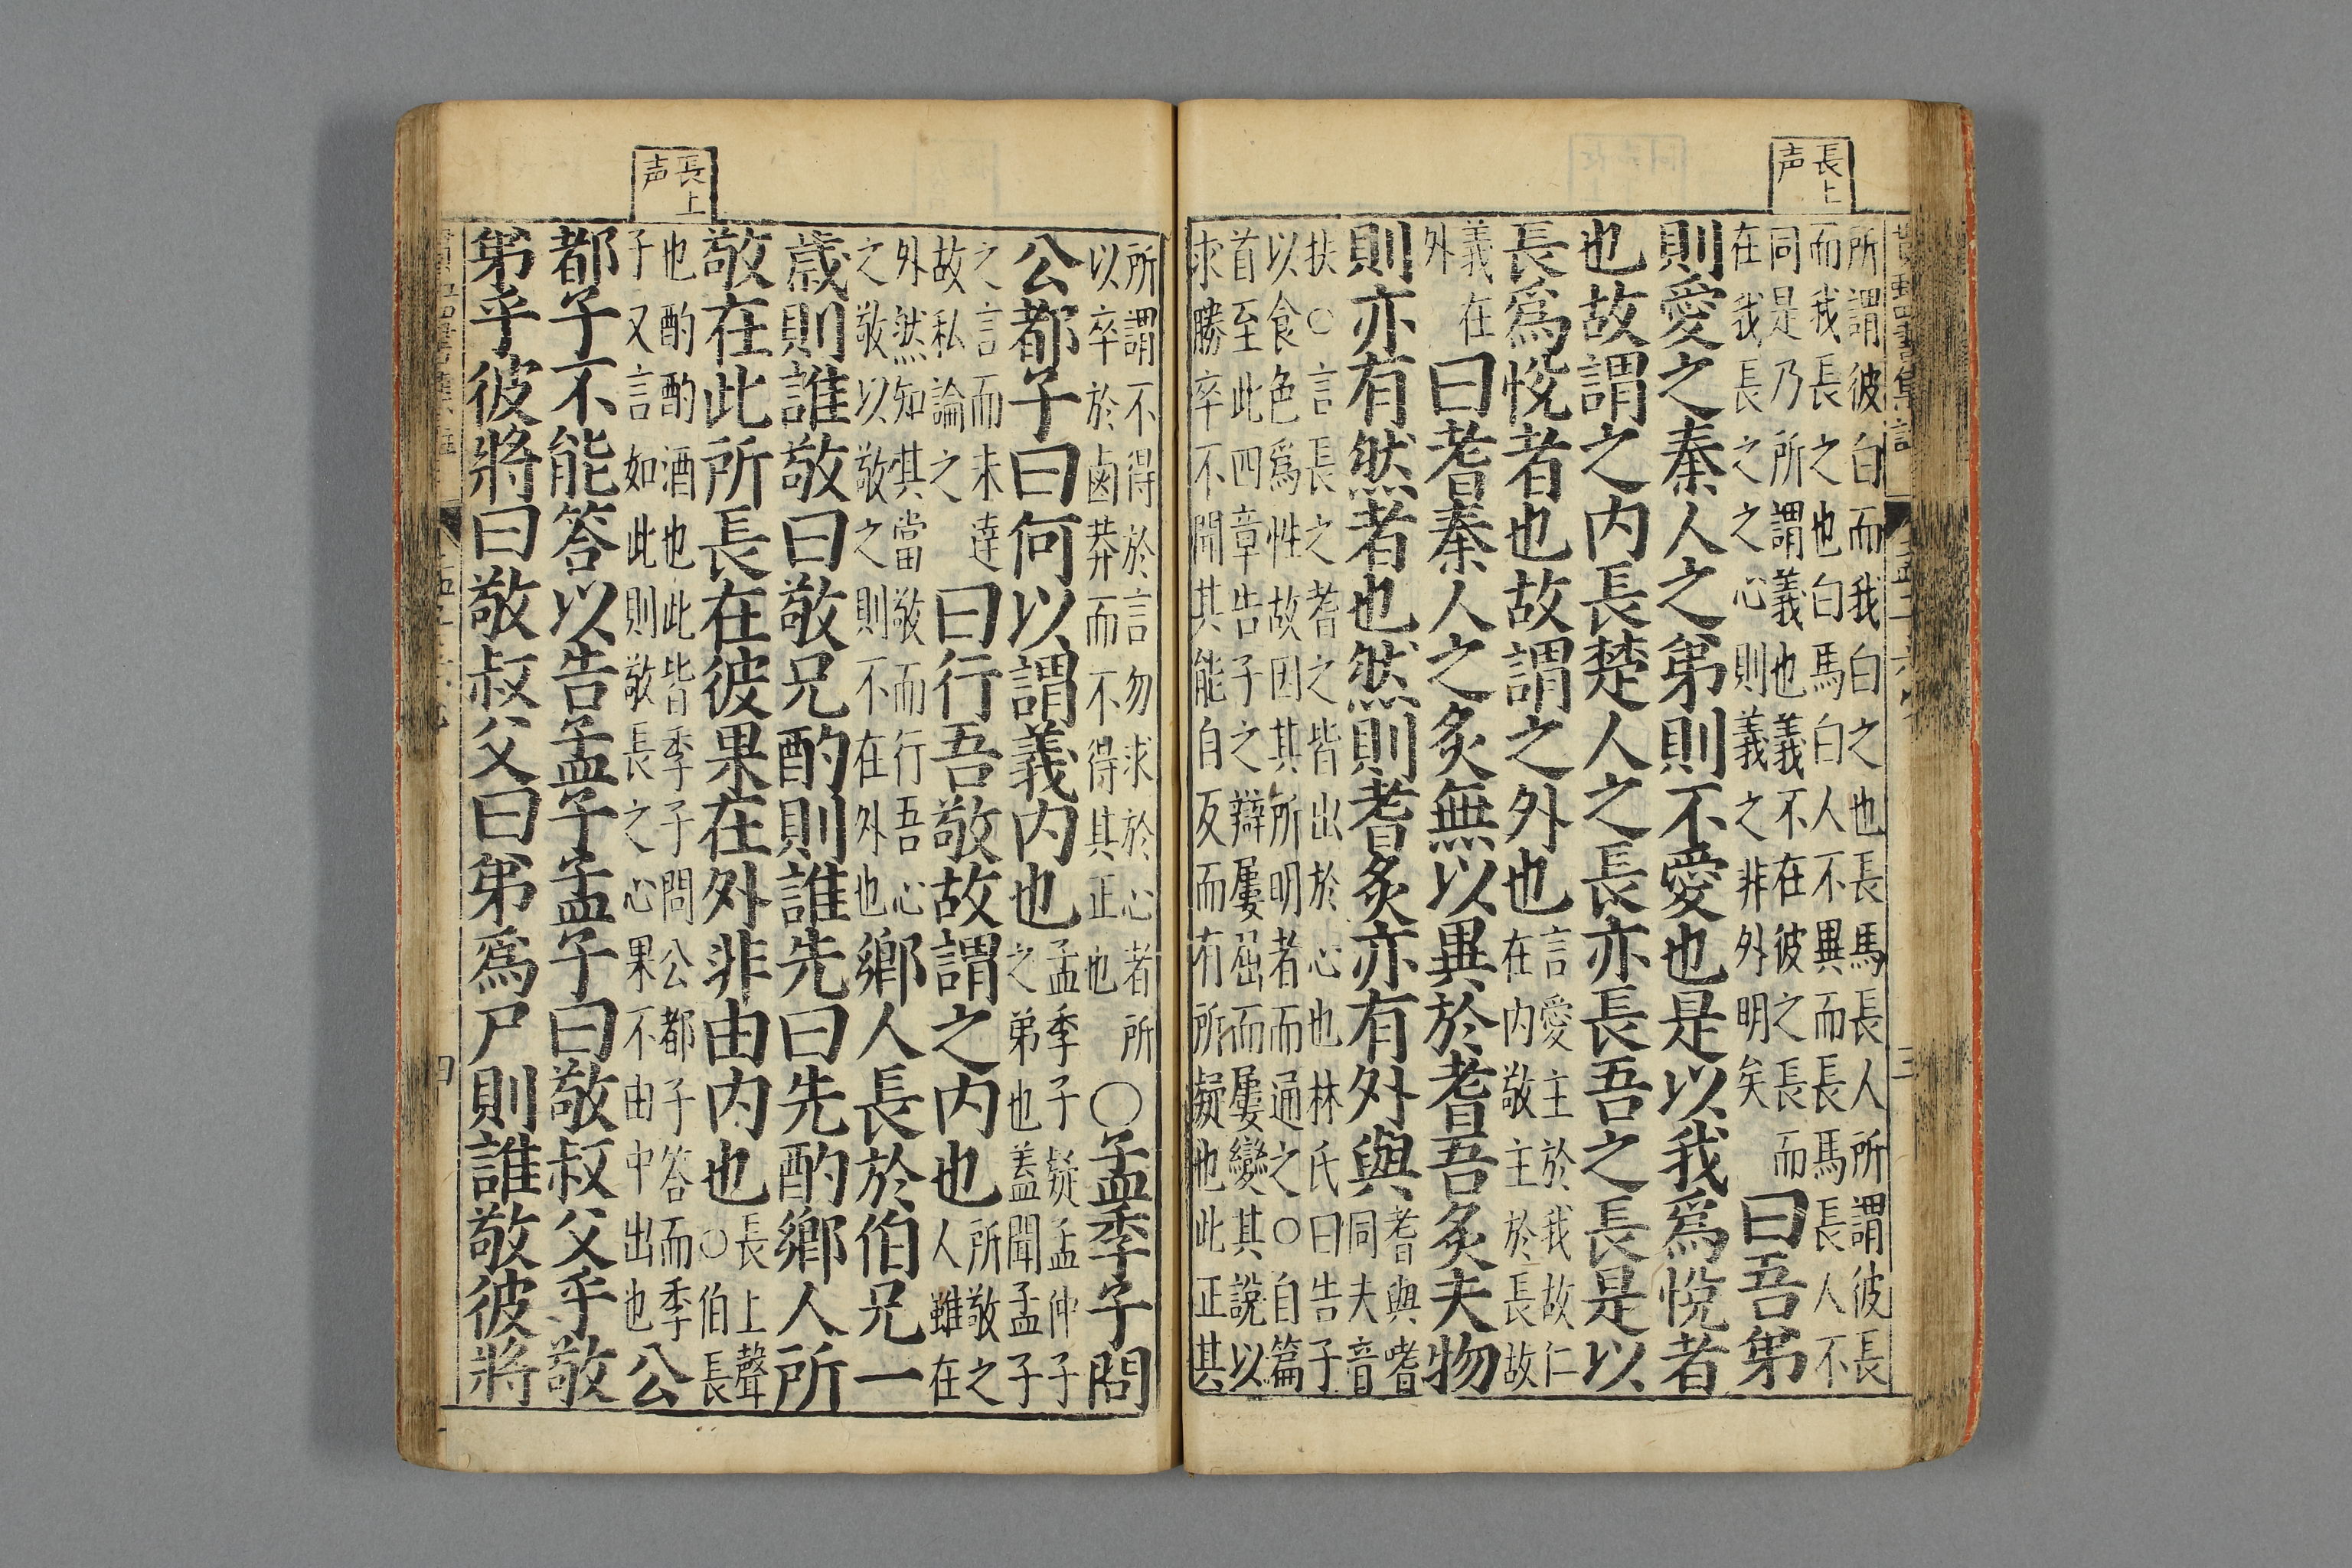 長上
声
所謂彼白而我白之也長馬長人所謂彼長
而我長之也白馬白人不異而長馬長人不
同是乃所謂義也義不在彼之長而
在我長之之心則義之非外明矣
曰吾弟
則愛之秦人之弟則不愛也是以我爲悅者
也故謂之内長楚人之長亦長吾之長是以
長爲悅者也故謂之外也
言愛主於我故仁
在内敬主於長故
義在
外
曰耆秦人之炙無以異於耆吾炙夫物
則亦有然者也然則耆炙亦有外與
耆與嗜
同夫音
扶○言長之耆之皆出於心也林氏曰告子
以食色爲性故因其所明者而通之○自篇
首至此四章告子之辯屢屈而屢變其說以
求勝卒不聞其能自反而有所疑也此正其
長上
声
所謂不得於言勿求於心者所
以卒於鹵莽而不得其正也
○孟季子問
公都子曰何以謂義内也
孟季子疑孟仲子
之弟也蓋聞孟子
之言而未達
故私論之
曰行吾敬故謂之内也
所敬之
人雖在
外然知其當敬而行吾心
之敬以敬之則不在外也
鄉人長於伯兄一
歲則誰敬曰敬兄酌則誰先曰先酌鄉人所
敬在此所長在彼果在外非由内也
長上聲
○伯長
也酌酌酒也此皆季子問公都子答而季
子又言如此則敬長之心果不由中出也
公
都子不能答以告孟子孟子曰敬叔父乎敬
弟乎彼將曰敬叔父曰弟爲尸則誰敬彼將
四